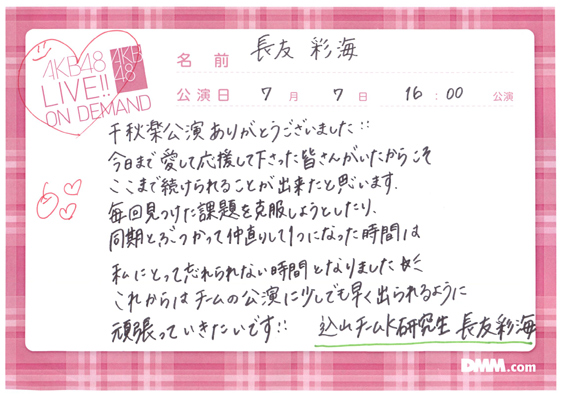 AKB48
LIVE!!
ON DEMAND
AKB
48
名 前 長友 彩海
公演日 7 月 7 日 16 : 00 公演
千秋楽公演ありがとうございました!!
今日まで愛して応援して下さった皆さんがいたからこそ
ここまで続けられることが出来たと思います.
毎回見つけた課題を克服しようとしたり、
同期とぶつかって仲直りして1つになった時間は
私にとって忘れられない時間となりました
これからはチームの公演に少しでも早く出られるように
頑張っていきたいです!! 込山チームK研究生 長友彩海
DMM.com